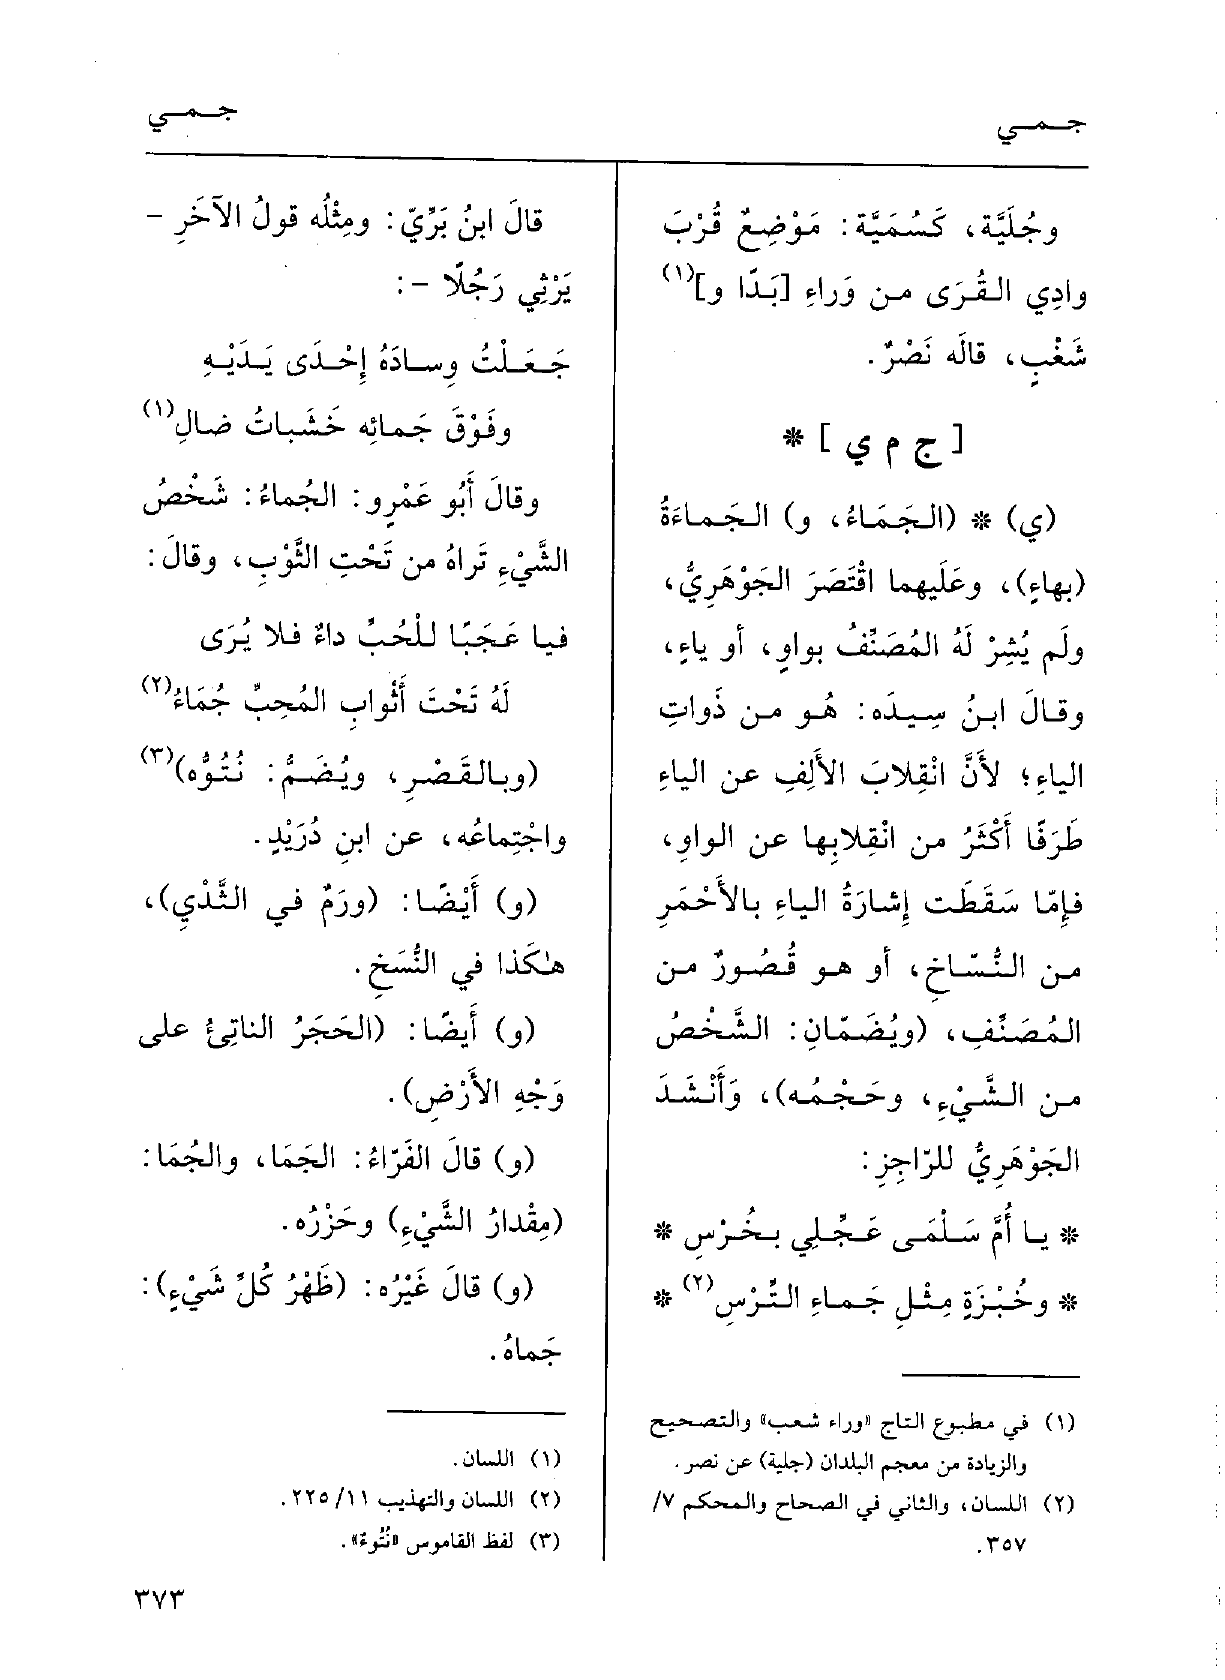 جـمـي
جـمـي
وجُلَيَّة، كَسُمَيَّة: مَوْضِعٌ قُرْبَ
وادِي القُرَى من وَراءِ [بَدًا و](١)
شَغْبٍ، قالَه نَصْرٌ.
[ ج م ي ] *
(ي) * (الجَمَاءُ، و) الجَماءَةُ
(بهاءٍ)، وعَلَيهما اقْتَصَرَ الجَوْهَرِيُّ،
ولَم يُشِرْ لَهُ المُصَنِّفُ بواوٍ، أو ياءٍ،
وقالَ ابنُ سِيدَه: هُو من ذَواتِ
الياءِ؛ لأَنَّ انْقِلابَ الأَلِفِ عن الياءِ
طَرَفًا أَكْثَرُ من انْقِلابِها عن الواوِ،
فإِمّا سَقَطَت إِشارَةُ الياءِ بالأَحْمَرِ
من النُّسّاخِ، أو هو قُصُورٌ من
المُصَنِّفِ، (ويُضَمّانِ: الشَّخْصُ
من الشَّيْءِ، وحَجْمُه)، وَأَنْشَدَ
الجَوْهَرِيُّ للرّاجِزِ:
* يا أُمَّ سَلْمَى عَجِّلِي بخُرْسِ *
* وخُبْزَةٍ مِثْلِ جَماءِ التُّرْسِ(٢) *
(١) في مطبوع التاج «وراء شعب» والتصحيح
والزيادة من معجم البلدان (جلية) عن نصر.
(٢) اللسان، والثاني في الصحاح والمحكم ٧/
٣٥٧.
قالَ ابنُ بَرِّيّ: ومِثْلُه قولُ الآخَرِ -
يَرْثِي رَجُلًا -:
جَعَلْتُ وِسادَهُ إِحْدَى يَدَيْهِ
وفَوْقَ جَمائِه خَشَباتُ ضالِ(١)
وقالَ أَبُو عَمْرٍو: الجُماءُ: شَخْصُ
الشَّيْءِ تَراهُ من تَحْتِ الثَّوْبِ، وقالَ:
فيا عَجَبًا للْحُبِّ داءً فلا يُرَى
لَهُ تَحْتَ أَثْوابِ المُحِبِّ جُمَاءُ(٢)
(وبالقَصْرِ، ويُضَمُّ: نُتُوُّه)(٣)
واجْتِماعُه، عن ابنِ دُرَيْدٍ.
(و) أَيْضًا: (ورَمٌ في الثَّدْيِ)،
هٰكَذا في النُّسَخِ.
(و) أَيضًا: (الحَجَرُ الناتِئُ على
وَجْهِ الأَرْضِ).
(و) قالَ الفَرّاءُ: الجَمَا، والجُمَا:
(مِقْدارُ الشَّيْءِ) وحَزْرُه.
(و) قالَ غَيْرُه: (ظَهْرُ كُلِّ شَيْءٍ):
جَماهُ.
(١) اللسان.
(٢) اللسان والتهذيب ١١/ ٢٢٥.
(٣) لفظ القاموس «نُتُوءٌ».
٣٧٣